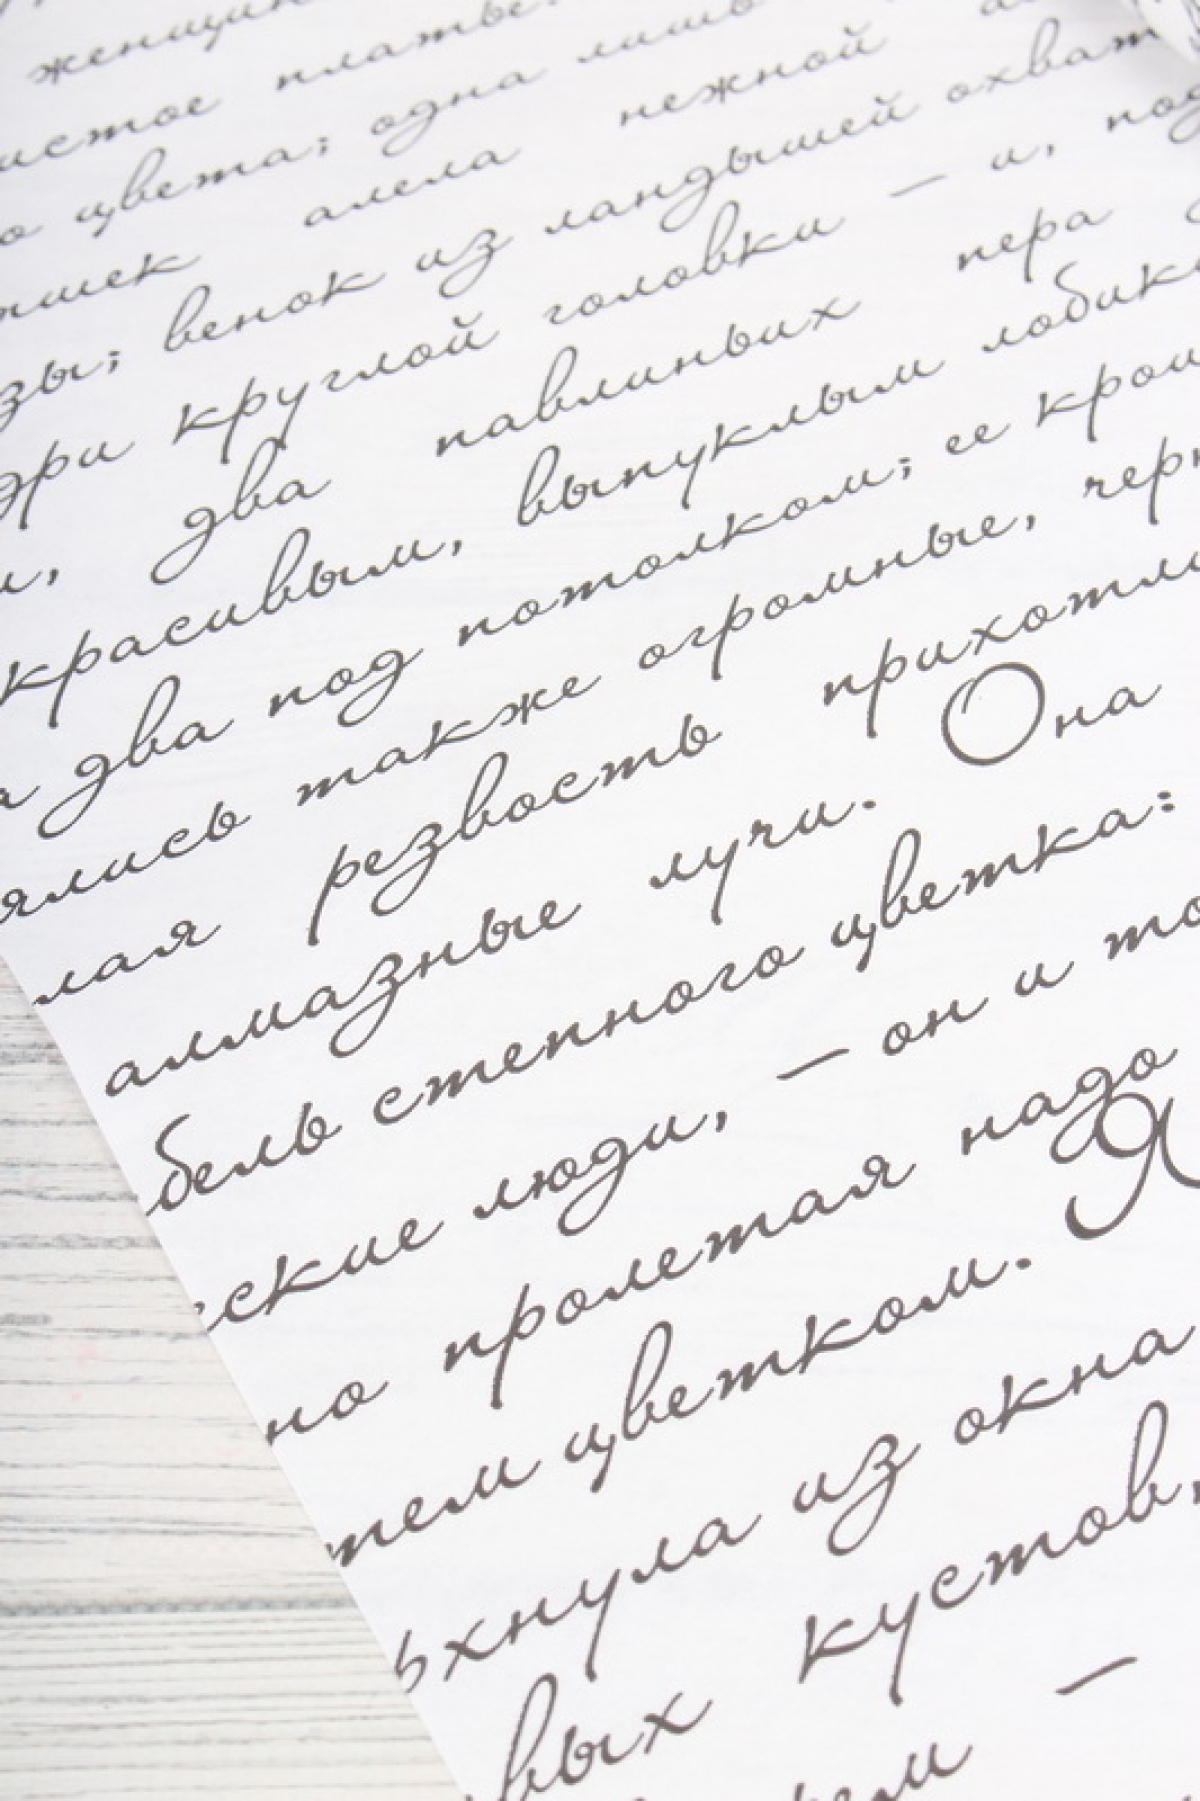 платье.
истое одна лишь
о цвета; нежной
ышек алела охват
зы; венок из ландышей
эри круглой головки — и, под
и, два павлиньих пера
красивым, выпуклым лобик
а два под потолком; ее
ялись также огромные, черн
лая резвость прихотли
алмазные лучи. Она
бель степного цветка:
еские люди, — он и то
но пролетая надо
тем цветком. Я
рхнула из окна
вых кустов,
—